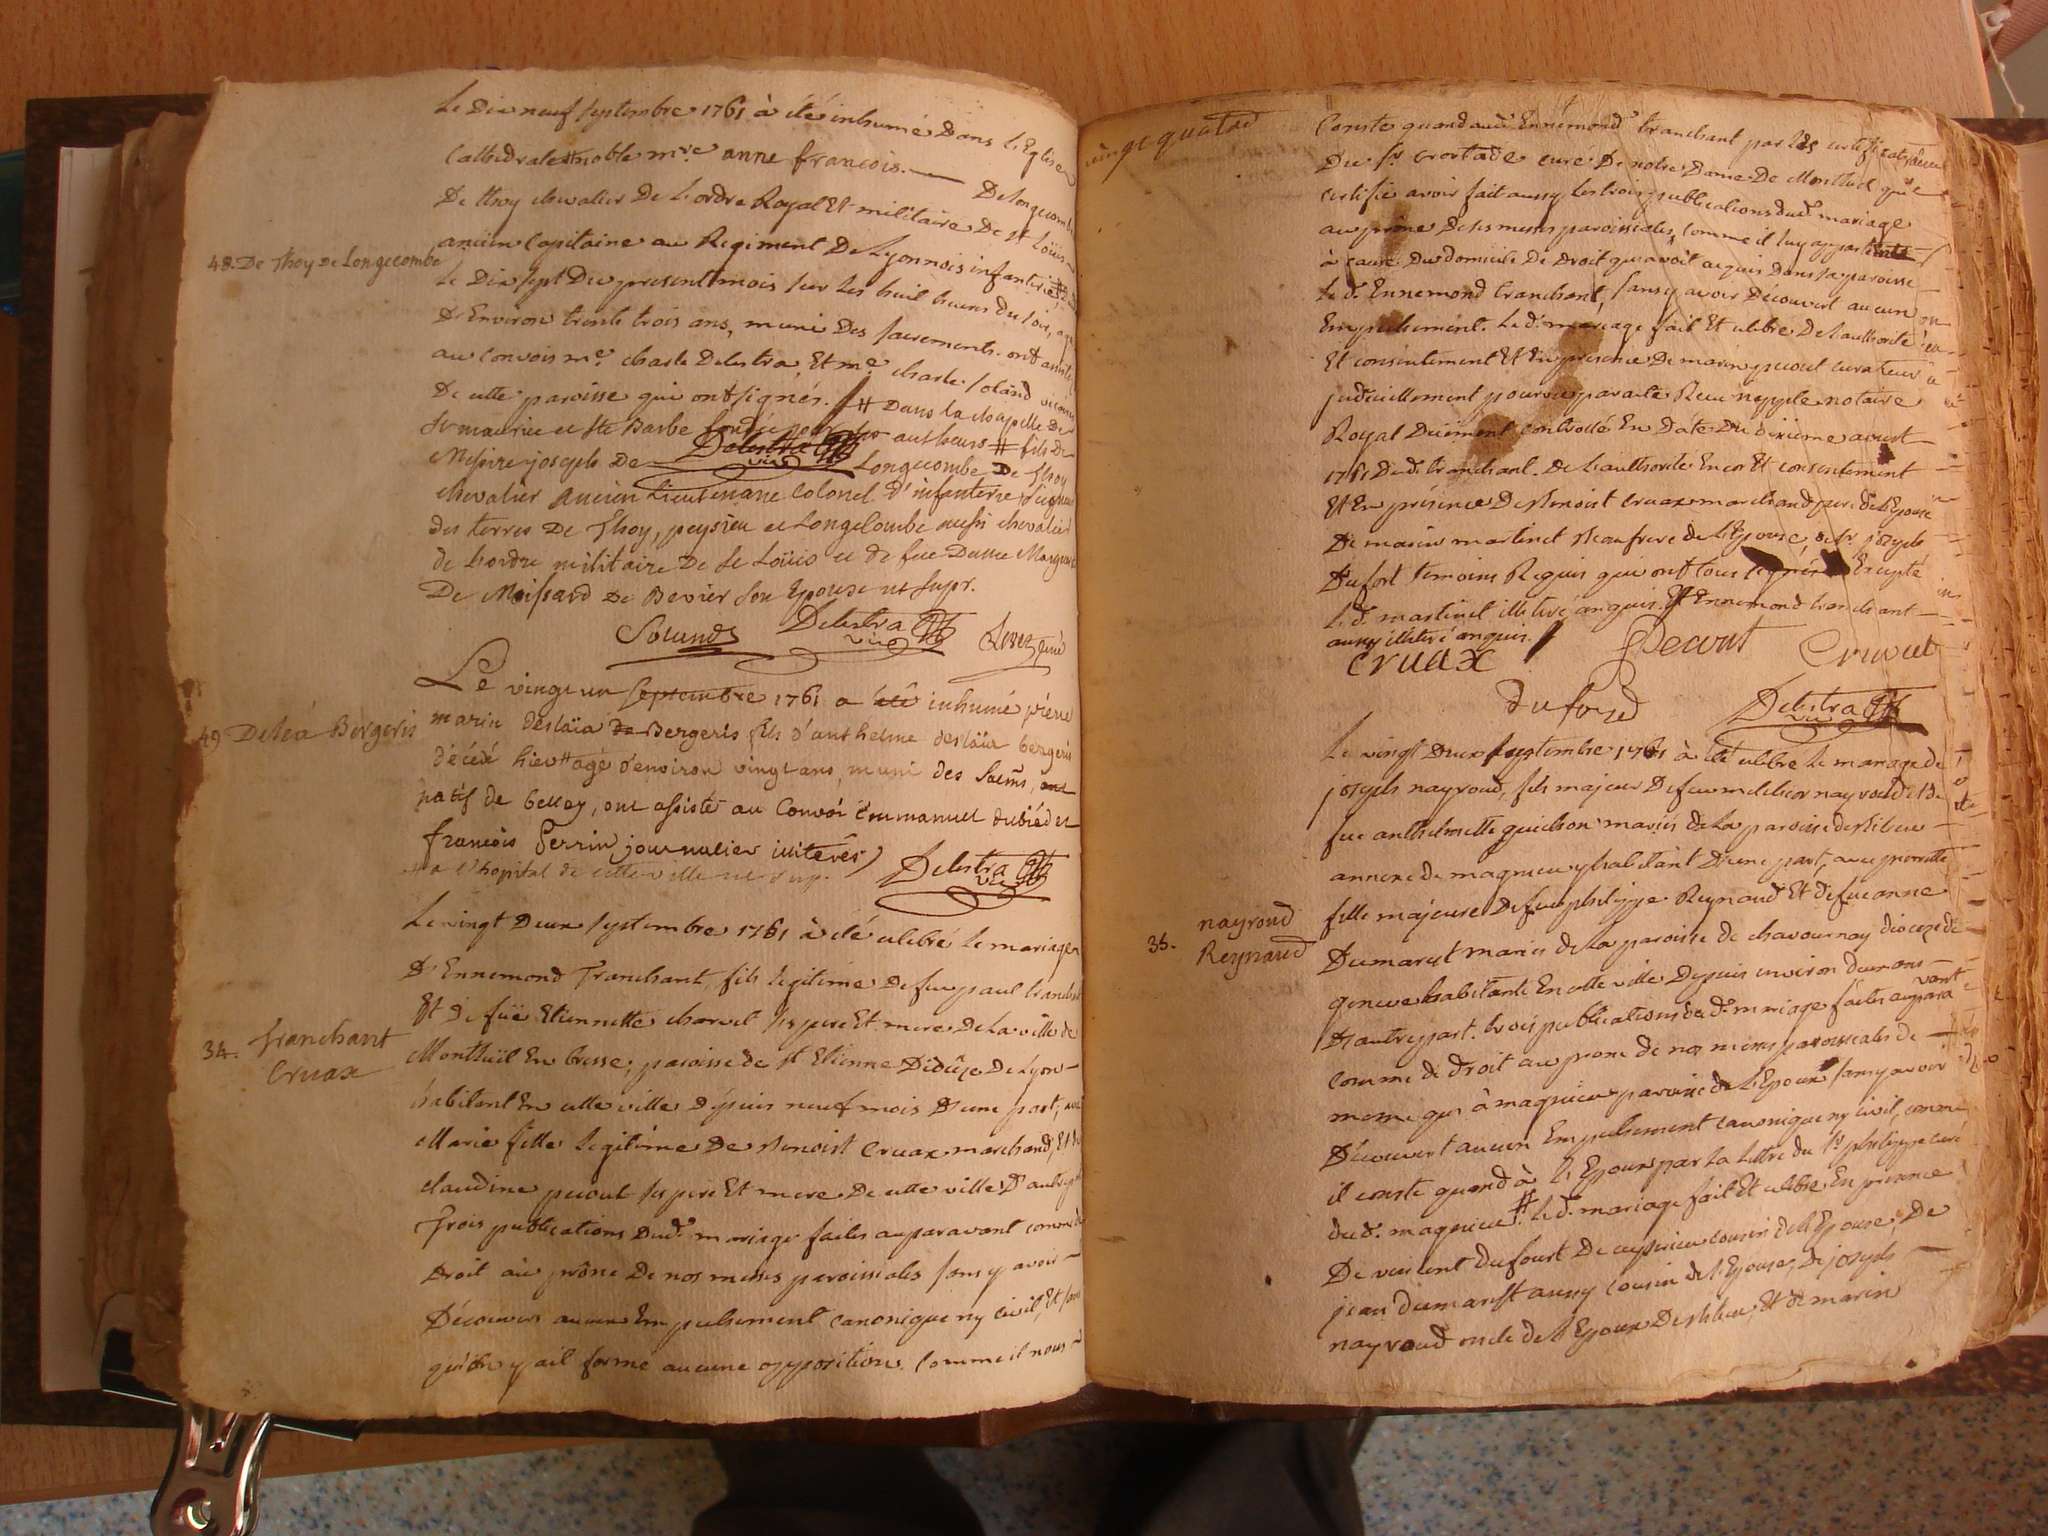 Le Dix neuf septembre 1761 à été inhumé Dans L'Eglise
Cathedrale noble mre anne francois. — De longecombe
De thoy chevalier De L'ordre Royal Et militaire De st Loüis
ancien Capitaine au Regiment De Lyonnois infanterie
48. De Thoy De Longecombe
Le Dix sept Du present mois sur Les huit heures du soir, agé
D'Environ trente trois ans, muni Des sacrements. ont assisté
au convois me. charle Delestra, Et me charle soland vicaires
De cette paroisse qui ont signés. # Dans la chapelle De
st maurice et ste Barbe fondée par ses autheurs # fils de
Messire joseph De Longecombe De Thoy
Delestra vic
chevalier ancien Lieutenant Colonel d'infanterie seigneur
des terres De Thoy, peysieu et Longecombe aussi chevalier
de Lordre militaire De st Loüis et de feue Dame Marguerite
De Moissard De Bevier son Epouse ut supr.
Delestra vic
Le vingt un septembre 1761 a été inhumé pierre
49 Deléa Bergeris
marin deslaïa de Bergeris fils d'anthelme deslaïa bergeris
décédé hier # agé d'environ vingt ans, muni des sacms, ont
natif de belley, ont assisté au Convoi Emmanuel dubied et
francois Perrin journalier illiterés
# a l'hopital de cette ville ut sup.
Delestra vic
Le vingt Deux septembre 1761 à été celebré Le mariage
D'Ennemond Tranchant, fils legitime De feu paul tranchant
Et De füe Etiennette charvet ses pere Et mere De La ville de
34. Tranchant
Cruax
Montluël En bresse; paroisse de st Etienne Diocèze De Lyon —
habitant En cette ville Depuis neuf mois D'une part, avec
Marie fille Legitime De Benoist Cruax marchand, Et de
claudine pecout ses pere Et mere De cette ville D'autre part
Trois publications Dud. mariage faites auparavant comme de
Droit au prône De nos messes paroissiales sans y avoir —
Découvert aucun Empechement canonique ny civil, Et sans
qu'on y ait formé aucune opposition. Comme il nous
vingt quatre
Conste quand aud. Ennemond tranchant par Les certificats
Du sr crortade curé De notre Dame De Montluel qui
certifie avoir fait aussy Les trois publications dud. mariage
au prône De ses messes paroissiales, comme il luy appartient
à cause Du domicile De Droit qu'avoit acquis Dans sa paroisse
Le d. Ennemond tranchant, sans y avoir Découvert aucun
Empechement. Le d. mariage fait Et celebré De L'authorité
Et consentement Et En presence De marin pecout curateur
judiciellement pourvu par acte Reçu notaire
Royal Düement controllé En Date Du dixieme aoust
1761 Dud. tranchant. De L'authorité Encor Et consentement
Et En présence De Benoist cruax marchand pere De L'Epouse
De marin martinet Beaufrere de L'Epouse, de sr. joseph
Dufort temoins Requis qui ont tous signés Excepté
Le d. martinet illiteré anquis. Et Ennemond tranchant —
aussy illiteré anquis.
cruax Pecout
Delestra vic
Le vingt Deux septembre 1761 à été celebré Le mariage De
joseph nayroud, fils majeur De feu melchior nayroud Et De
feue anthelmette guichon mariés de La paroisse
annexe de magnieu y habitant D'une part, avec pierrette
fille majeure De feu philippe Reynaud Et de feue anne
35. nayroud
Reynaud
Dumarest mariés de La paroisse de chavournay dioceze de
geneve habitante En cette ville Depuis environ deux ans —
D'autre part. trois publications dud. mariage faites auparavant
comme de droit au prone de nos messes paroissiales de —
meme que à magnieu paroisse de L'Epoux sans y avoir
Découvert aucun Empechement canonique ny civil, comme
il conste quand à L'Epoux par La Lettre du sr philippe curé
dud. magnieu. Le d. mariage fait Et celebré En presence
De vincent Dufourt De ceyserieu cousin de L'Epouse, De
jean Dumarest aussy cousin de L'Epouse, De joseph —
nayroud oncle de L'Epoux Et de marin